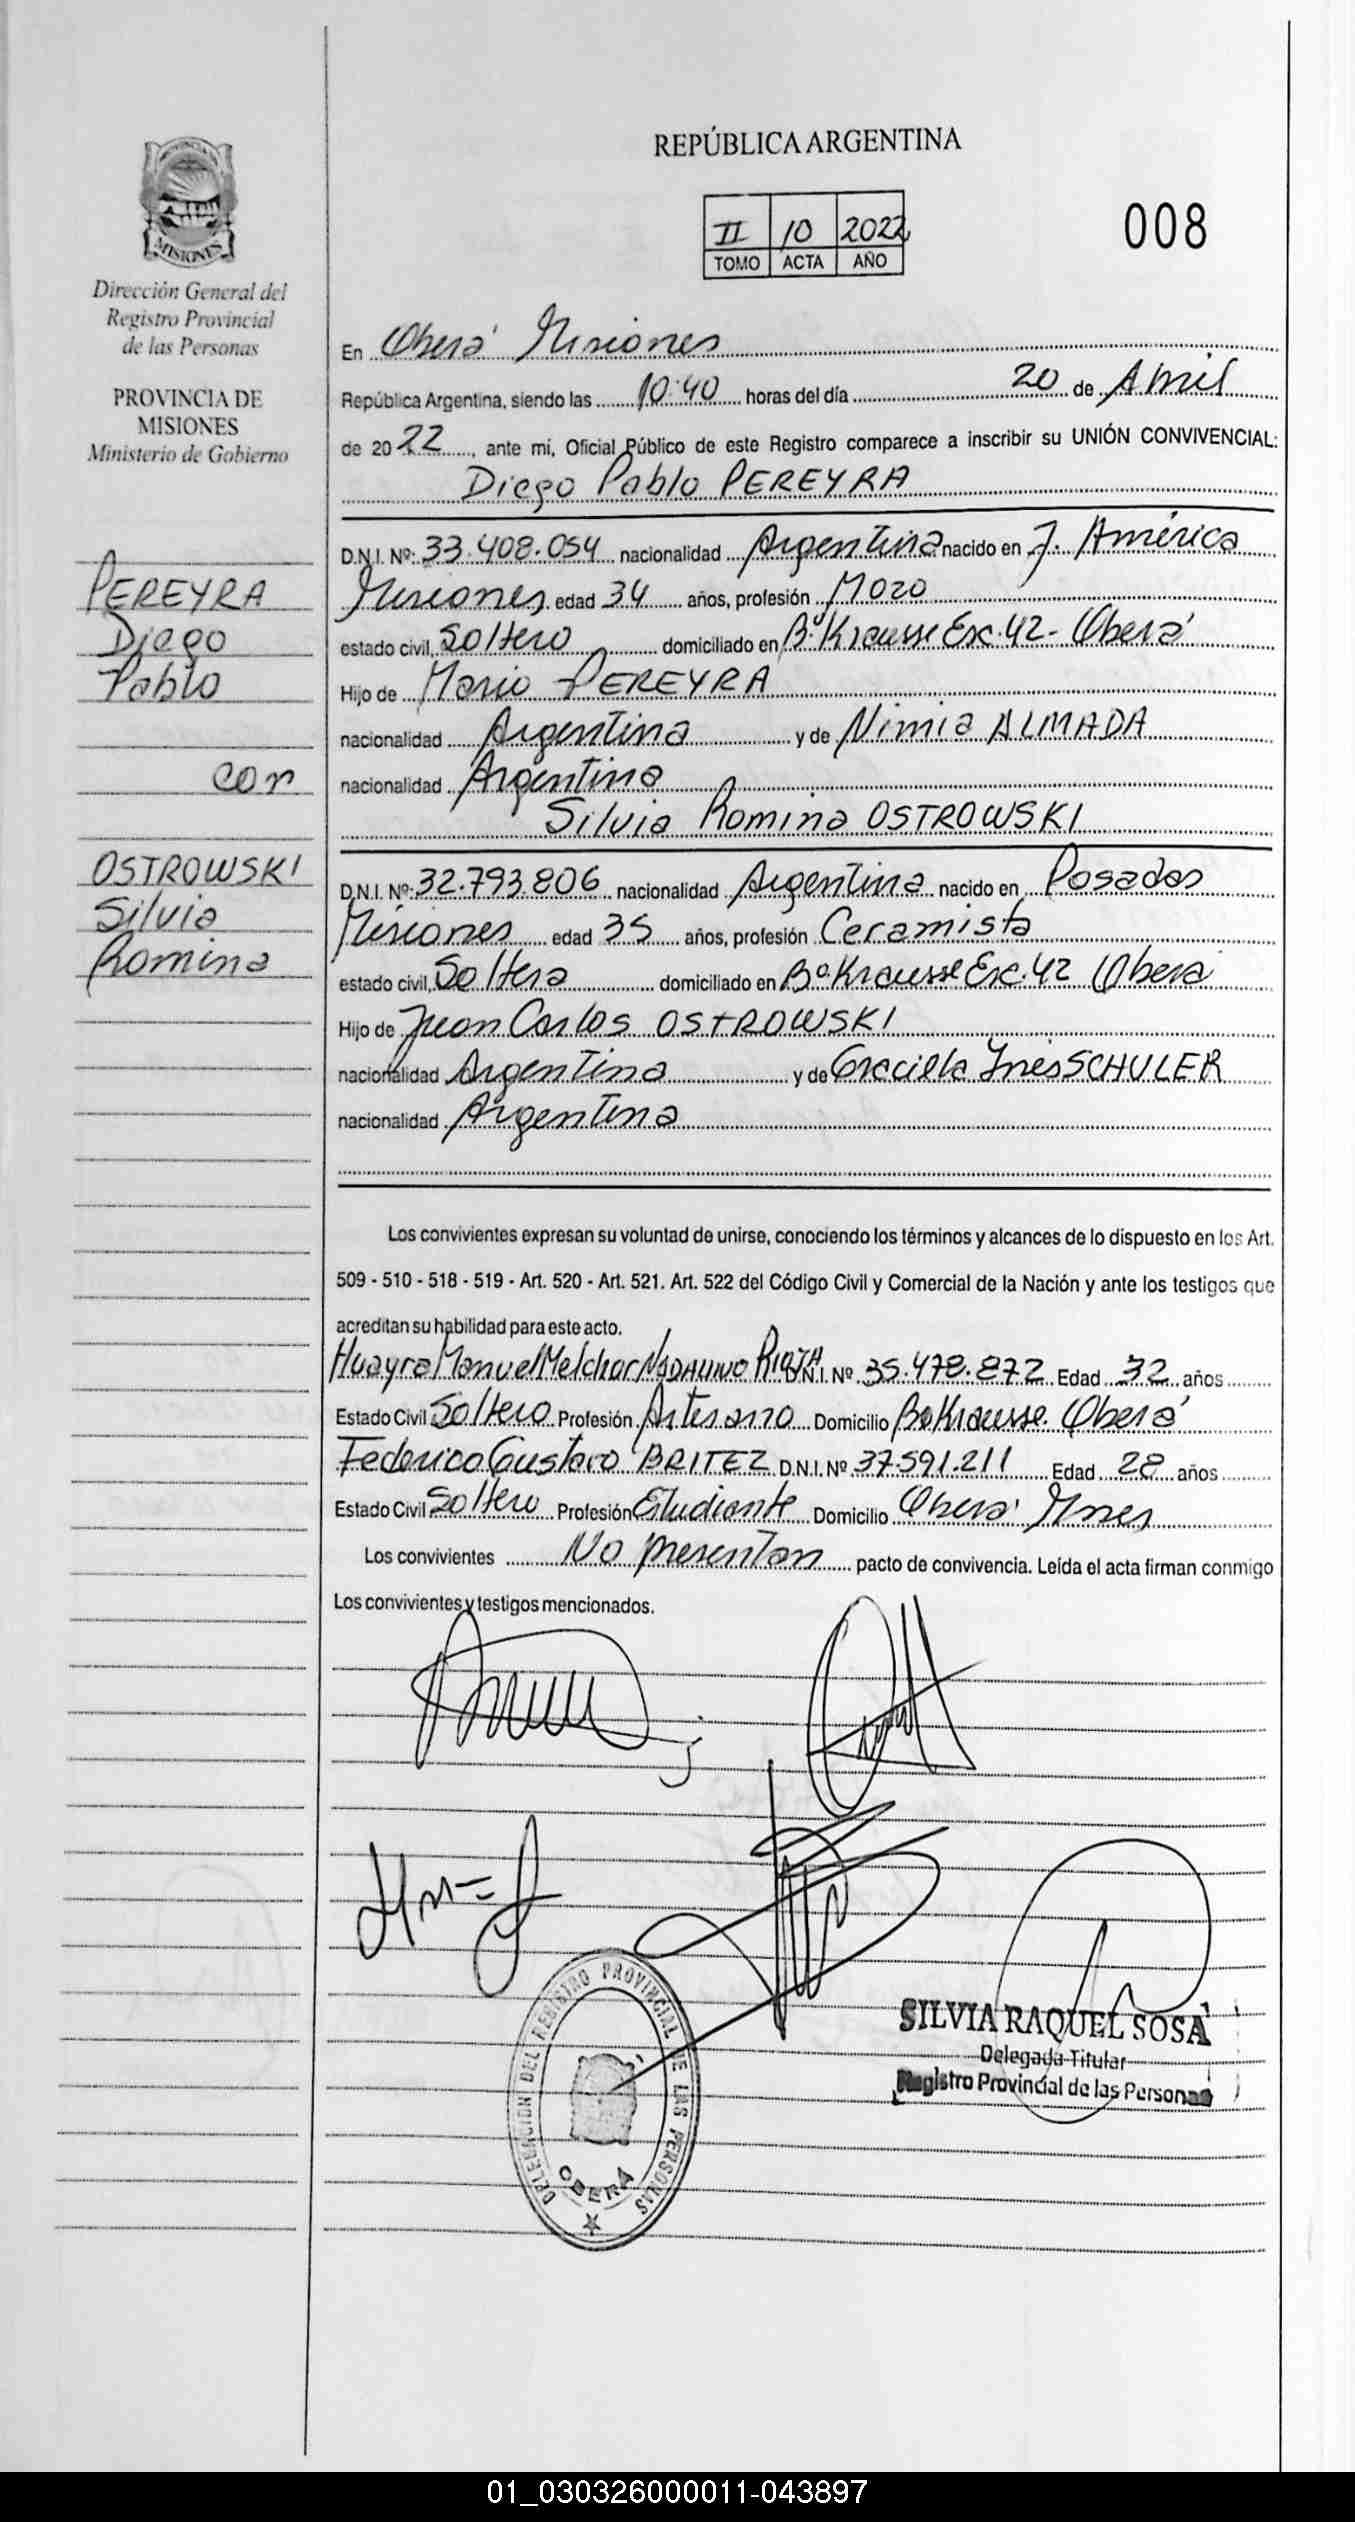 REPÚBLICA ARGENTINA
II 10 2022
TOMO ACTA AÑO
008
MISIONES
Dirección General del
Registro Provincial
de las Personas
PROVINCIA DE
MISIONES
Ministerio de Gobierno
PEREYRA
Diego
Pablo
con
OSTROWSKI
Silvia
Romina
En Oberá Misiones
República Argentina, siendo las 10:40 horas del día 20 de Abril
de 2022, ante mi, Oficial Público de este Registro comparece a inscribir su UNIÓN CONVIVENCIAL:
Diego Pablo PEREYRA
D.N.I. Nº: 33.408.054 nacionalidad Argentina nacido en J. América
Misiones edad 34 años, profesión Mozo
estado civil, Soltero domiciliado en Bº Krausse Esc. 42 - Oberá
Hijo de Mario PEREYRA
nacionalidad Argentina y de Nimia ALMADA
nacionalidad Argentina
Silvia Romina OSTROWSKI
D.N.I. Nº: 32.793.806 nacionalidad Argentina nacido en Posadas
Misiones edad 35 años, profesión Ceramista
estado civil, Soltera domiciliado en Bº Krausse Esc. 42 Oberá
Hijo de Juan Carlos OSTROWSKI
nacionalidad Argentina y de Graciela Inés SCHULER
nacionalidad Argentina
Los convivientes expresan su voluntad de unirse, conociendo los términos y alcances de lo dispuesto en los Art.
509 - 510 - 518 - 519 - Art. 520 - Art. 521. Art. 522 del Código Civil y Comercial de la Nación y ante los testigos que
acreditan su habilidad para este acto.
Huayra Manuel Melchor NADALINO RIOJA D.N.I. Nº 35.478.872 Edad 32 años
Estado Civil Soltero Profesión Artesano Domicilio Bº Krausse Oberá
Federico Gustavo BRITEZ D.N.I. Nº 37.591.211 Edad 28 años
Estado Civil Soltero Profesión Estudiante Domicilio Oberá Mnes
Los convivientes No presentan pacto de convivencia. Leída el acta firman conmigo
Los convivientes y testigos mencionados.
DELEGACIÓN DEL REGISTRO PROVINCIAL DE LAS PERSONAS
OBERÁ
SILVIA RAQUEL SOSA
Delegada Titular
Registro Provincial de las Personas
01_030326000011-043897